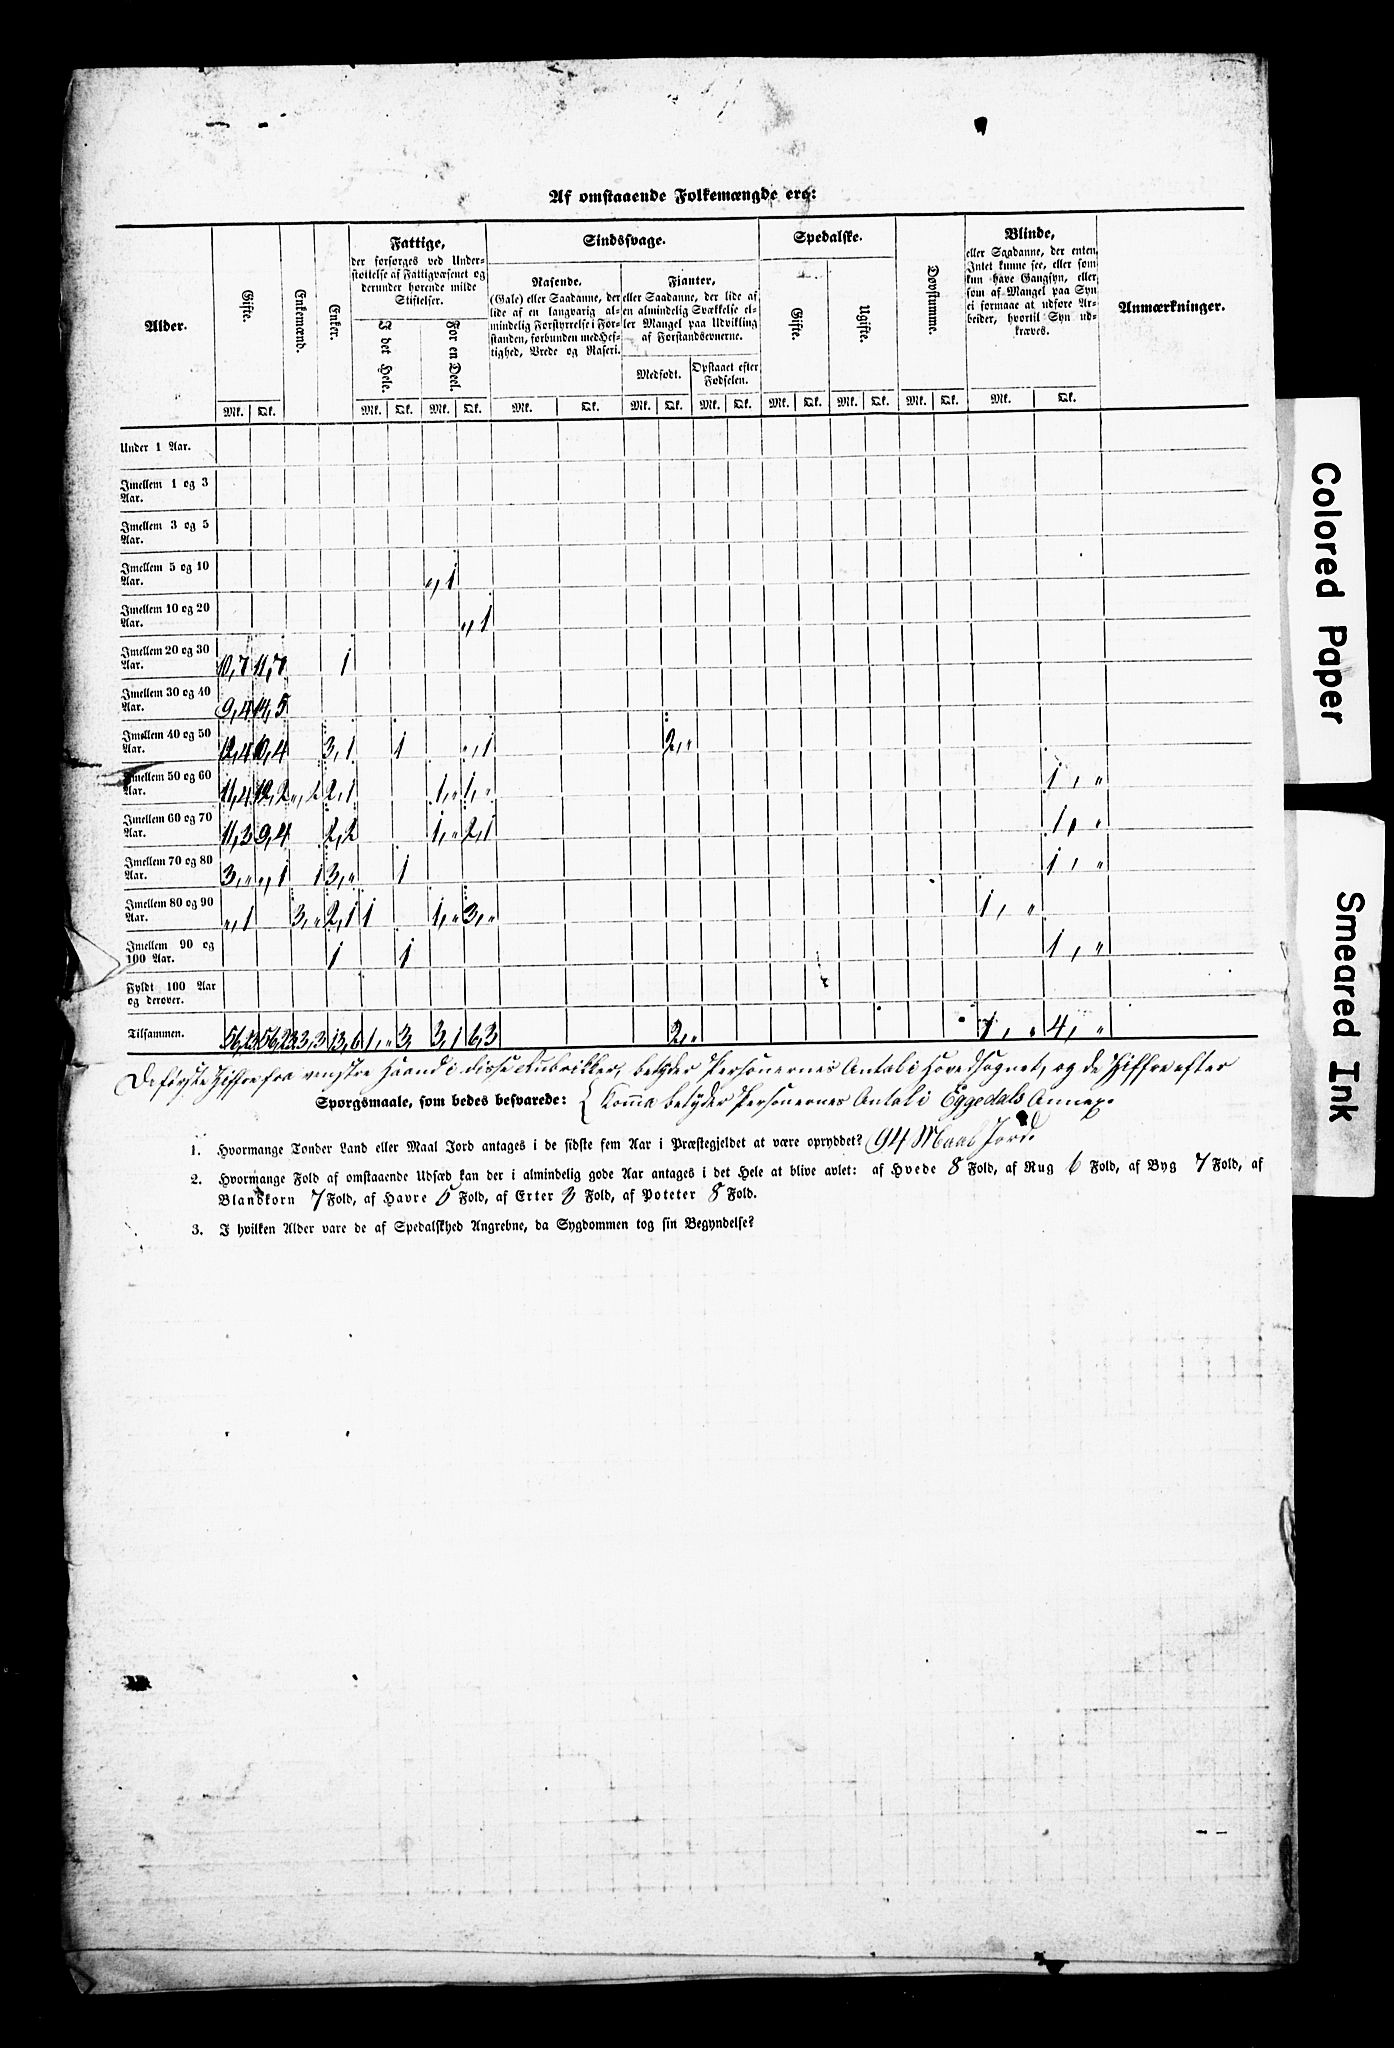 Af omstaaende Folkemængde ere:
Alder.
Gifte.
Enkemænd.
Enker.
Fattige,
der forsørges ved Under-
støttelse af Fattigvæsenet og
derunder hørende milde
Stiftelser.
I det Hele.
For en Deel.
Sindssvage.
Rasende.
(Gale) eller Saadanne, der
lide af en langvarig al-
mindelig Forstyrrelse i For-
standen, forbunden med Hef-
tighed, Vrede og Raseri.
Fianter,
eller Saadanne, der lide af
en almindelig Svækkelse el-
ler Mangel paa Udvikling
af Forstandsevnerne.
Medfødt.
Opstaaet efter
Fødselen.
Spedalske.
Gifte.
Ugifte.
Døvstumme.
Blinde,
eller Saadanne, der enten
Intet kunne see, eller som
kun have Gangsyn, eller
som af Mangel paa Syn
ei formaae at udføre Ar-
beider, hvortil Syn ud-
kræves.
Anmærkninger.
Mk. Qk. Mk. Qk. Mk. Qk. Mk. Qk. Mk. Qk. Mk. Qk. Mk. Qk. Mk. Qk. Mk. Qk. Mk. Qk.
Under 1 Aar.
Imellem 1 og 3
Aar.
Imellem 3 og 5
Aar.
Imellem 5 og 10
Aar. „,1
Imellem 10 og 20
Aar. „,1
Imellem 20 og 30
Aar. 10,7 11,7 1
Imellem 30 og 40
Aar. 9,4 14,5
Imellem 40 og 50
Aar. 12,4 10,4 3,1 1 „,1 2,„
Imellem 50 og 60
Aar. 11,4 12,2 „,2 2,1 1,„ 1,„ 1,„
Imellem 60 og 70
Aar. 11,3 9,4 2,2 1,„ 2,1 1,„
Imellem 70 og 80
Aar. 3,„ „,1 1 3,„ 1 1,„
Imellem 80 og 90
Aar. „,1 3,„ 2,1 1 1,„ 3,„ 1,„
Imellem 90 og
100 Aar. 1 1 1,„
Fyldt 100 Aar
og derover.
Tilsammen. 56,23 56,23 3,3 13,6 1,„ 3, 3,1 6,3 2,„ 1,„ 4,„
De første Ziffre fra venstre Haand i disse Rubrikker, betyder Personernes Antal i Hovedsognet, og de Ziffre efter
Spørgsmaale, som bedes besvarede: { Comma betyder Personernes Antal i Eggedals Annex.
1. Hvormange Tønder Land eller Maal Jord antages i de sidste fem Aar i Præstegjeldet at være opryddet? 94 Maal Jord.
2. Hvormange Fold af omstaaende Udsæd kan der i almindelig gode Aar antages i det Hele at blive avlet: af Hvede 8 Fold, af Rug 6 Fold, af Byg 7 Fold, af
Blandkorn 7 Fold, af Havre 5 Fold, af Erter 3 Fold, af Poteter 8 Fold.
3. I hvilken Alder vare de af Spedalskhed Angrebne, da Sygdommen tog sin Begyndelse?
Colored Paper
Smeared Ink